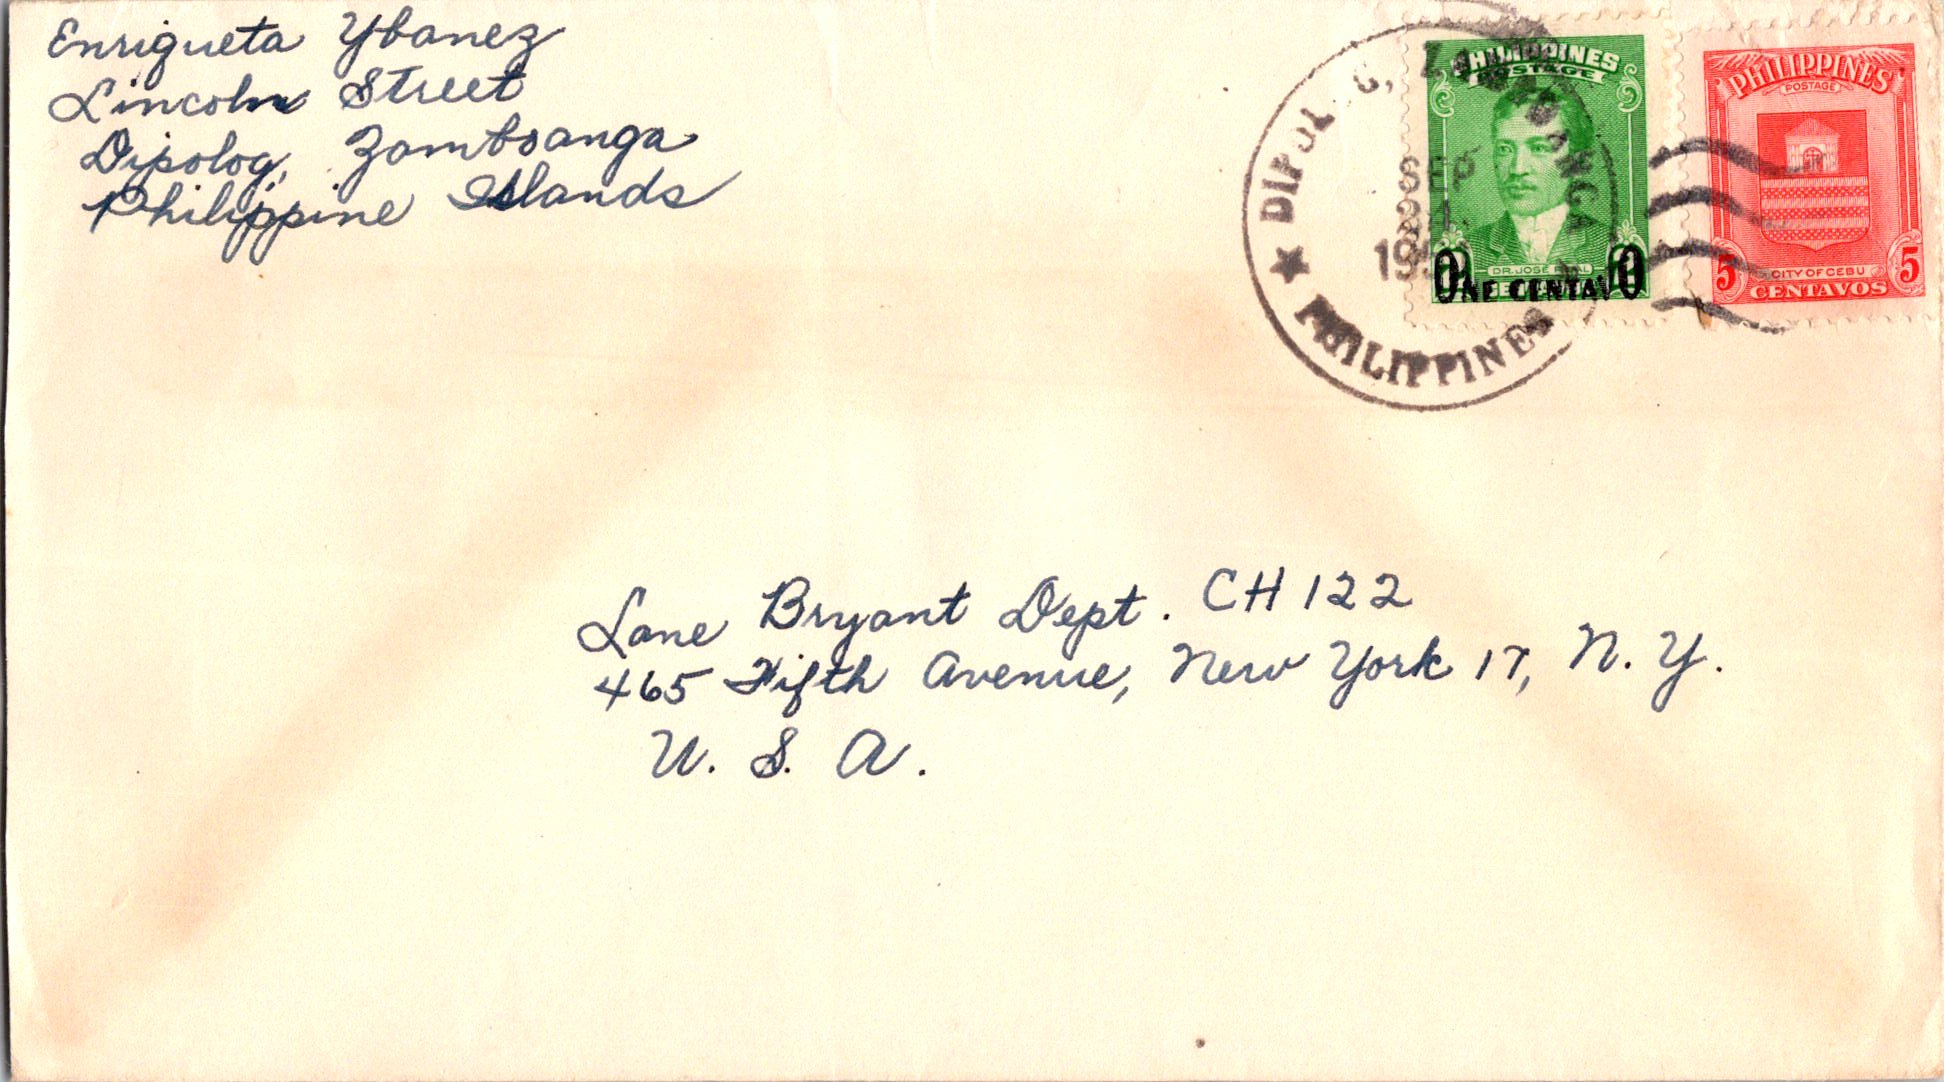 Enriqueta Ybanez
Lincoln Street
Dipolog, Zamboanga
Philippine Islands
PHILIPPINES
POSTAGE
DR. JOSE RIZAL
ONE CENTAVO
PHILIPPINES
POSTAGE
CITY OF CEBU
5 5
CENTAVOS
DIPOLOG, ZAMBOANGA
SEP
PHILIPPINES
Lane Bryant Dept. CH 122
465 Fifth Avenue, New York 17, N. Y.
U. S. A.